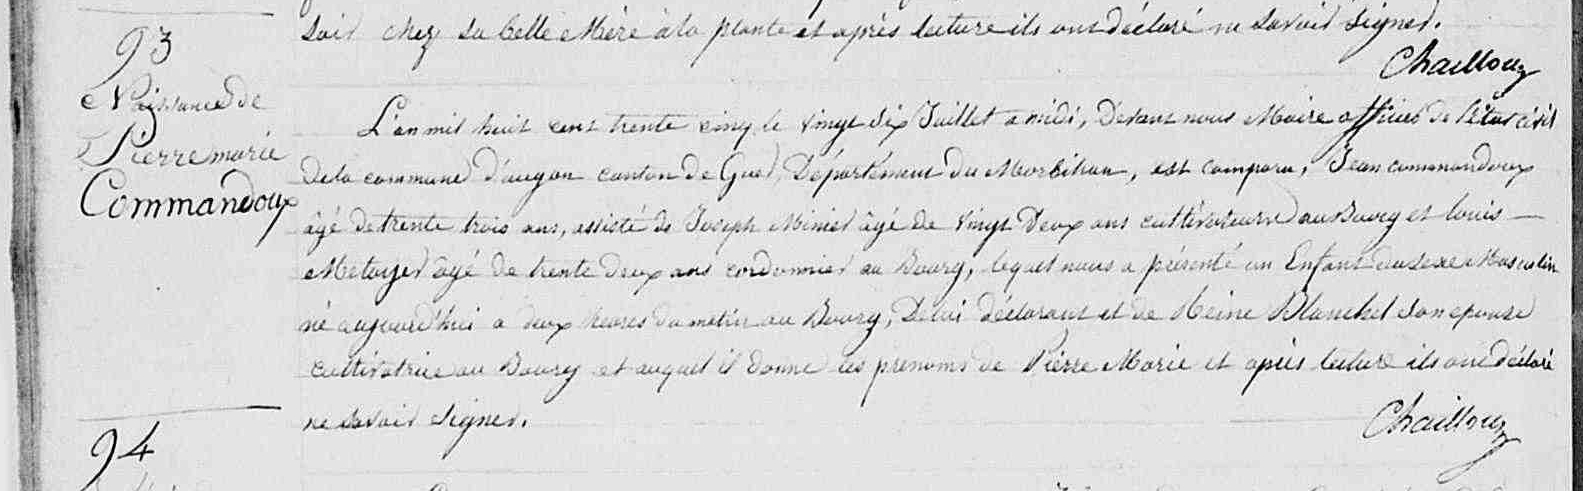 soir chez sa belle Mère à la plante et après lecture ils ont déclaré ne savoir signer.
Chaillou
93
Naissance de
Pierre marie
Commandoux
L'an mil huit cent trente cinq le vingt six Juillet a midi, Devant nous Maire officier de l'état civil
De la commune d'augan canton de Guer, Département du Morbihan, est comparu, Jean commandoux
âgé de trente trois ans, assisté de Joseph Minier âgé de vingt Deux ans cultivateur au Bourg et louis
Metayer âgé de trente deux ans cordonnier au Bourg, lequel nous a présenté un Enfant du sexe Masculin
né aujourd'hui a deux heures du matin au Bourg, De lui déclarant et de Reine Blanchet son epouse
cultivatrice au Bourg et auquel il donne les prenoms de Pierre Marie et après lecture ils ont déclaré
ne savoir signer.
Chaillou
94